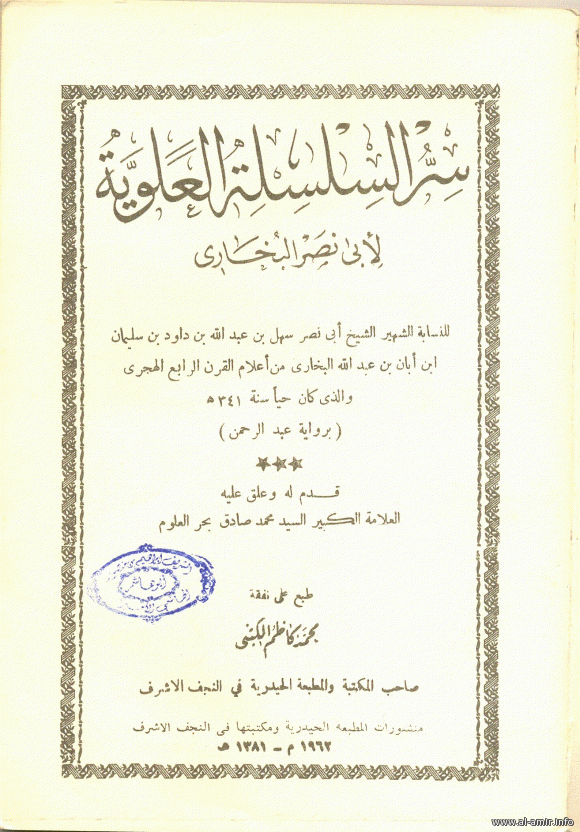 سِرُّ السِّلسِلةِ العَلَويَّة
لأبى نَصرِ البُخَارى
للنسابة الشهير الشيخ أبى نصر سهل بن عبد الله بن داود بن سليمان
ابن أبان بن عبد الله البخارى من أعلام القرن الرابع الهجرى
والذى كان حياً سنة ٣٤١ ه
( برواية عبد الرحمن )
قـــدم له وعلق عليه
العلامة الكبير السيد محمد صادق بحر العلوم
طبع على نفقة
محمد كاظم الكتبى
صاحب المكتبة والمطبعة الحيدرية في النجف الاشرف
منشورات المطبعه الحيدرية ومكتبتها فى النجف الاشرف
١٩٦٢ م – ١٣٨١ هـ
www.al-amir.info